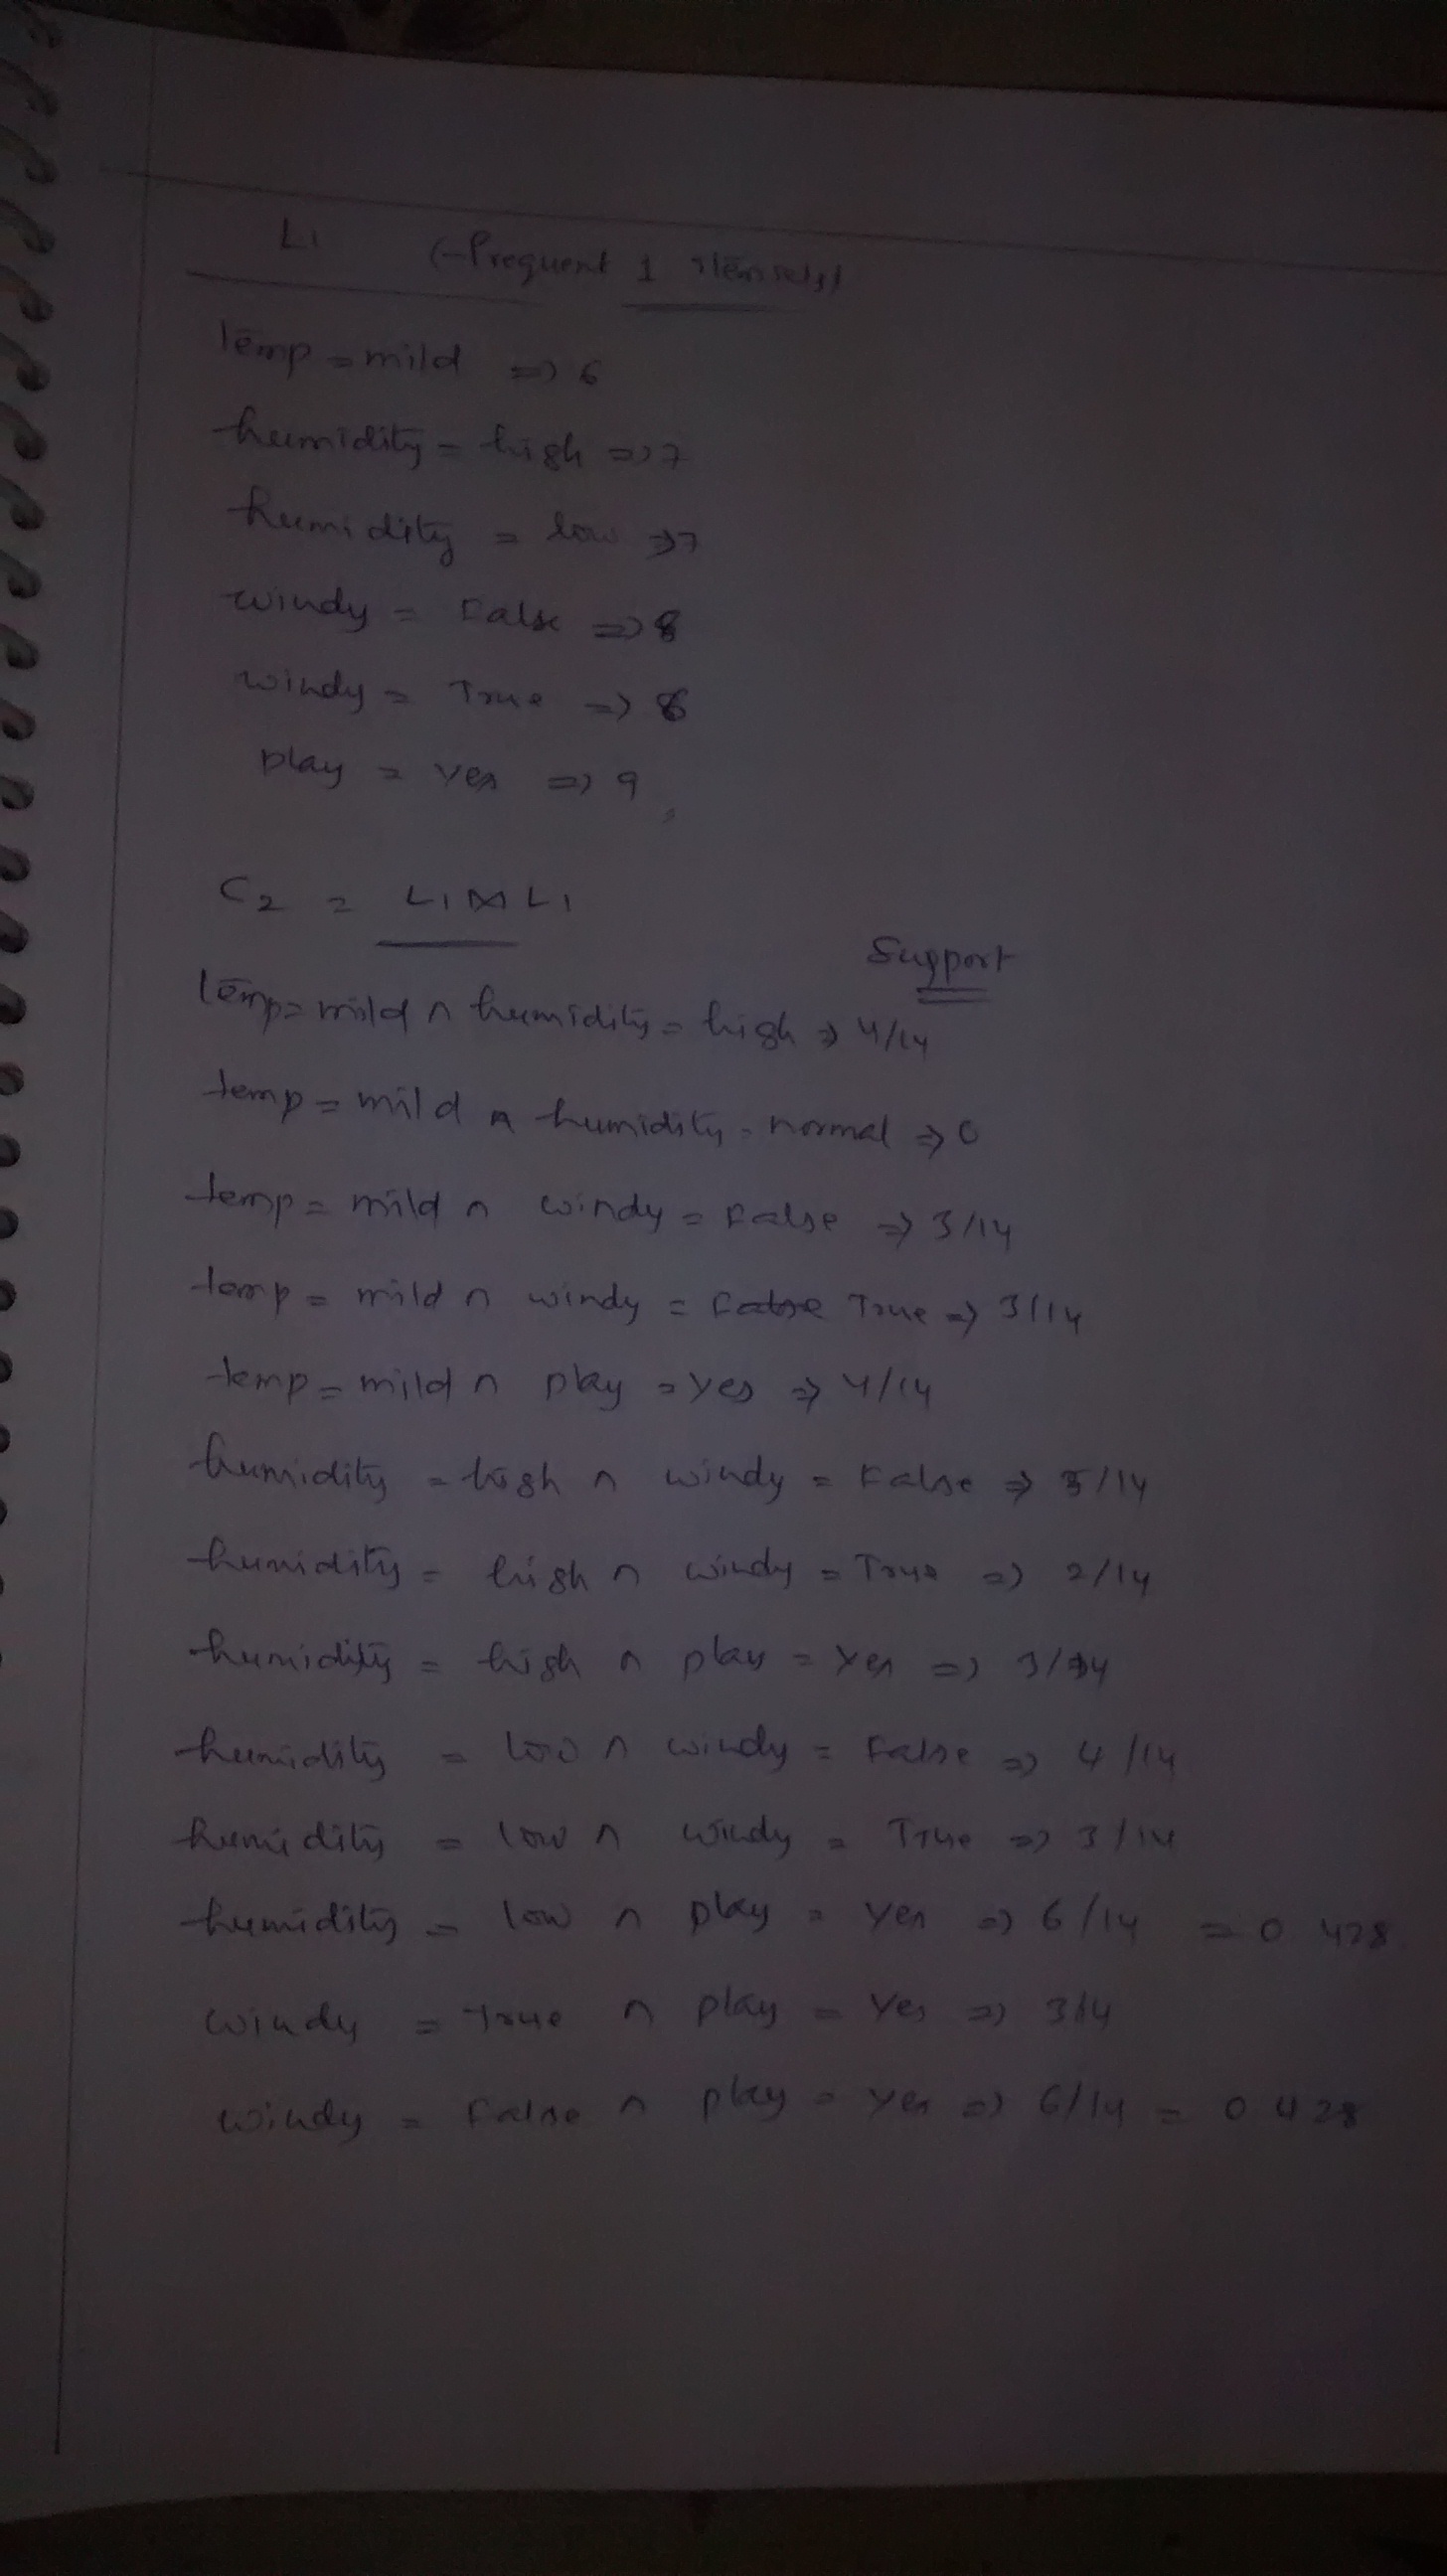 L1 (frequent 1 itemsets)
temp = mild => 6
humidity = high => 7
humidity = low => 7
windy = False => 8
windy = True => 6
play = yes => 9
C2 = L1 ⋈ L1
Support
temp = mild ∩ humidity = high => 4/14
temp = mild ∩ humidity = normal => 0
temp = mild ∩ windy = False => 3/14
temp = mild ∩ windy = False True => 3/14
temp = mild ∩ play = yes => 4/14
humidity = high ∩ windy = False => 3/14
humidity = high ∩ windy = True => 2/14
humidity = high ∩ play = yes => 3/14
humidity = low ∩ windy = False => 4/14
humidity = low ∩ windy = True => 3/14
humidity = low ∩ play = yes => 6/14 = 0.428
windy = True ∩ play = Yes => 3/14
windy = False ∩ play = yes => 6/14 = 0.428